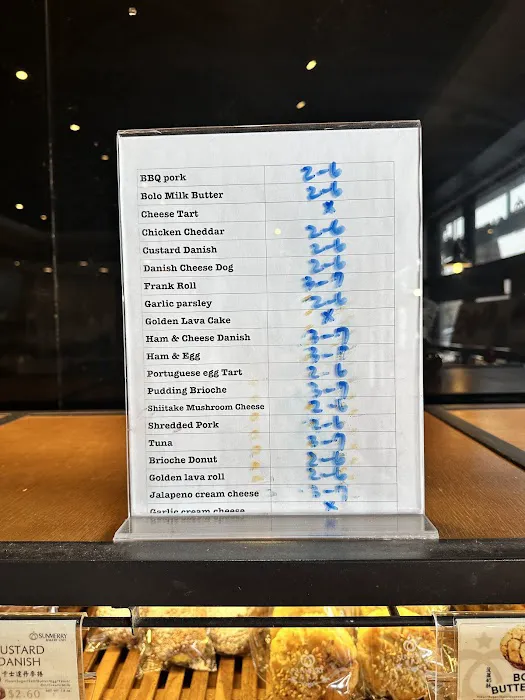 BBQ pork 2-6
Bolo Milk Butter 2-6
Cheese Tart x
Chicken Cheddar 2-6
Custard Danish 2-6
Danish Cheese Dog 2-6
Frank Roll
Garlic parsley 2-6
Golden Lava Cake x
Ham & Cheese Danish 3-9
Ham & Egg 3-9
Portuguese egg Tart 2-6
Pudding Brioche 3-9
Shiitake Mushroom Cheese 2-6
Shredded Pork 2-6
Tuna
Brioche Donut 2-6
Golden lava roll
Jalapeno cream cheese
Garlic cream cheese x
SUNMERRY
USTARD
DANISH
$2.60
BO
BUTTE